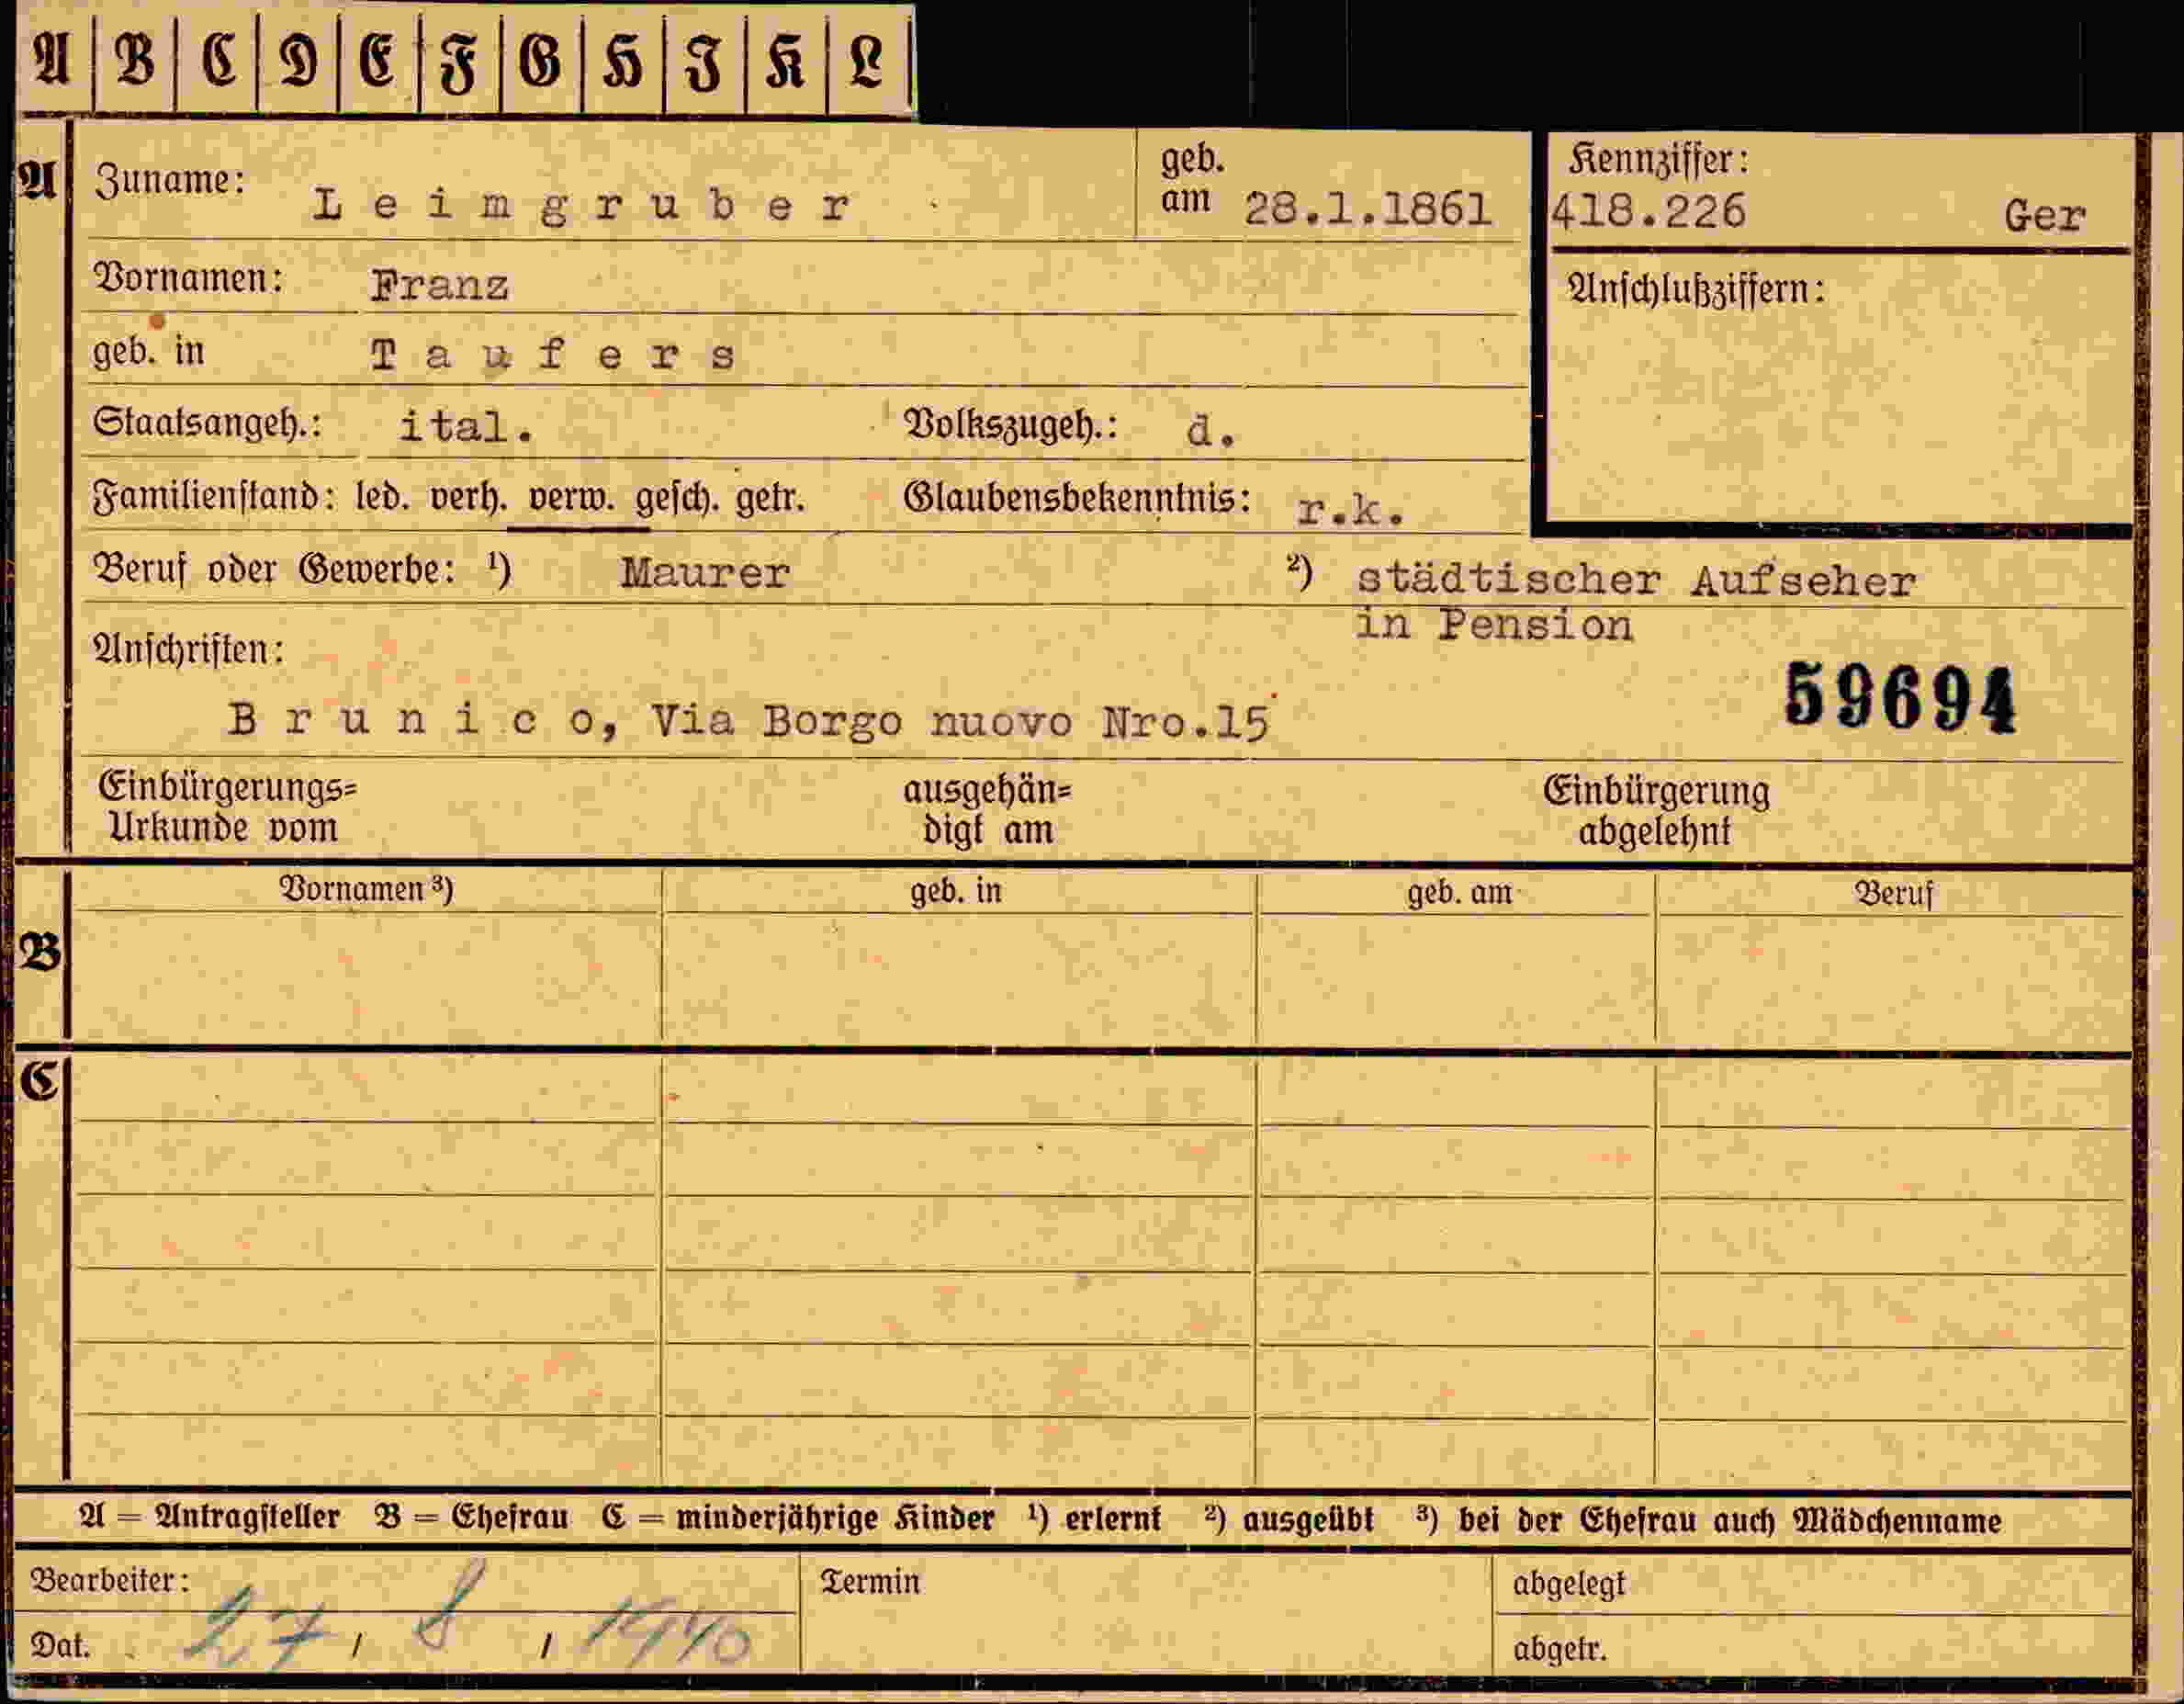 A B C D E F G H I K L
A Zuname: Leimgruber geb. am 28.1.1861 Kennziffer: 418.226 Ger
Vornamen: Franz Anschlußziffern:
geb. in Taufers
Staatsangeh.: ital. Volkszugeh.: d.
Familienstand: led. verh. verw. gesch. getr. Glaubensbekenntnis: r.k.
Beruf oder Gewerbe: ¹) Maurer ²) städtischer Aufseher
in Pension
Anschriften:
59694
Brunico, Via Borgo nuovo Nro.15
Einbürgerungs= ausgehän= Einbürgerung
Urkunde vom digt am abgelehnt
Vornamen ³) geb. in geb. am Beruf
B
C
A = Antragsteller B = Ehefrau C = minderjährige Kinder ¹) erlernt ²) ausgeübt ³) bei der Ehefrau auch Mädchenname
Bearbeiter: Termin abgelegt
Dat. 27 / 8 / 1940 abgetr.